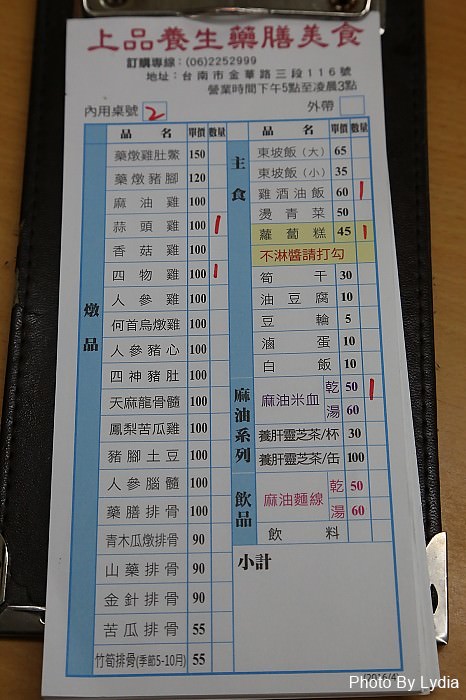 上品養生藥膳美食
訂購專線：(06)2252999
地址：台南市金華路三段116號
營業時間下午5點至凌晨3點
內用桌號 2 外帶
品名 單價 數量
燉品
藥燉雞肚鱉 150
藥燉豬腳 120
麻油雞 100
蒜頭雞 100 1
香菇雞 100
四物雞 100 1
人參雞 100
何首烏燉雞 100
人參豬心 100
四神豬肚 100
天麻龍骨髓 100
鳳梨苦瓜雞 100
豬腳土豆 100
人參腦髓 100
藥膳排骨 100
青木瓜燉排骨 90
山藥排骨 90
金針排骨 90
苦瓜排骨 55
竹筍排骨(季節5-10月) 55
品名 單價 數量
主食
東坡飯(大) 65
東坡飯(小) 35
雞酒油飯 60 1
燙青菜 50
蘿蔔糕 45 1
不淋醬請打勾
筍干 30
油豆腐 10
豆輪 5
滷蛋 10
白飯 10
麻油系列
麻油米血 乾 50 1
湯 60
養肝靈芝茶/杯 30
養肝靈芝茶/缶 100
飲品
麻油麵線 乾 50
湯 60
飲料
小計
2016/4
Photo By Lydia